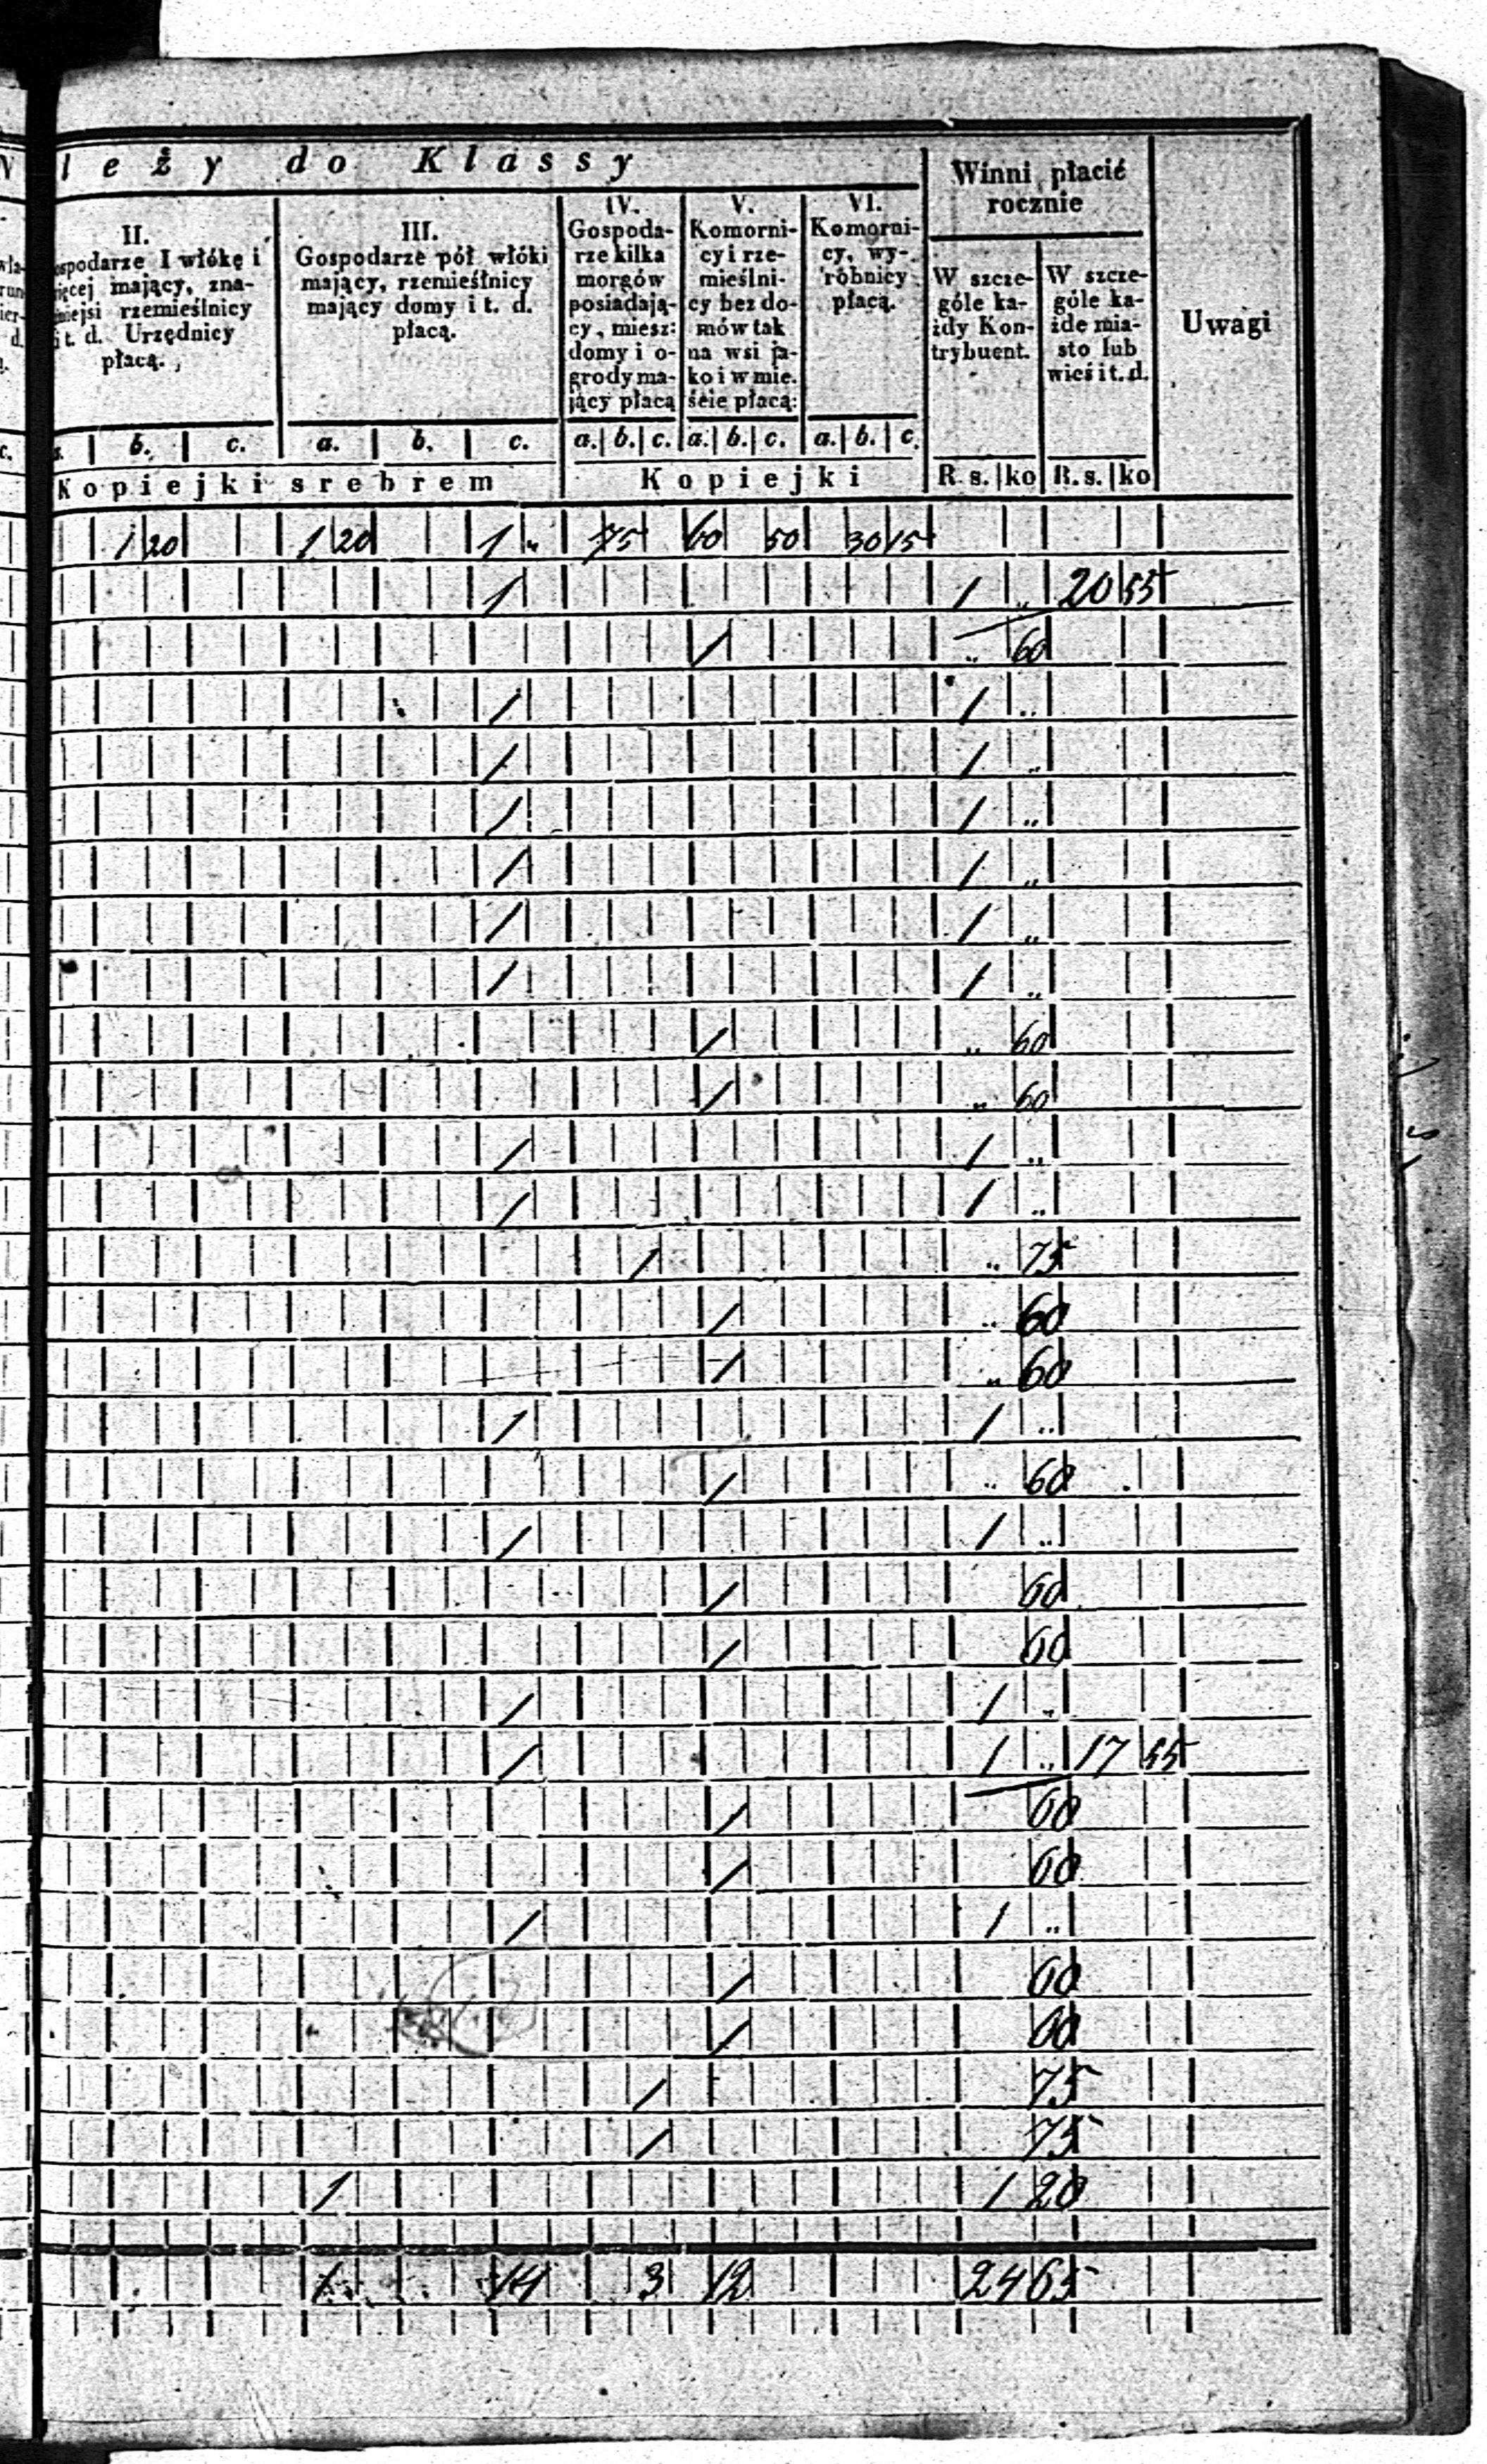 leży do Klassy
Winni płacić rocznie
Uwagi
II.
spodarze I włókę i
ięcej mający, zna-
mniejsi rzemieślnicy
i t. d. Urzędnicy
płacą.
III.
Gospodarze pół włóki
mający, rzemieślnicy
mający domy i t. d.
płacą.
IV.
Gospoda-
rze kilka
morgów
posiadają-
cy, miesz:
domy i o-
grody ma-
jący płacą
V.
Komorni-
cy i rze-
mieślni-
cy bez do-
mów tak
na wsi ja-
ko i w mie.
ście płacą:
VI.
Komorni-
cy, wy-
robnicy
płacą.
W szcze-
góle ka-
żdy Kon-
trybuent.
W szcze-
góle ka-
żde mia-
sto lub
wieś i t. d.
b. c. a. b. c. a. b. c. a. b. c. a. b. c.
Kopiejki srebrem Kopiejki R s. ko R. s. ko
1 20 1 20 1 „ 75 60 50 30 15
1 1 „ 20 55
1 „ 60
1 1 „
1 1 „
1 1 „
1 1 „
1 1 „
1 1 „
1 „ 60
1 „ 60
1 1 „
1 1 „
1 „ 75
1 „ 60
1 „ 60
1 1 „
1 „ 60
1 1 „
1 60
1 60
1 1 „
1 1 „ 17 55
1 60
1 60
1 1 „
1 60
1 60
1 75
1 75
1 1 20
1 14 3 12 24 65